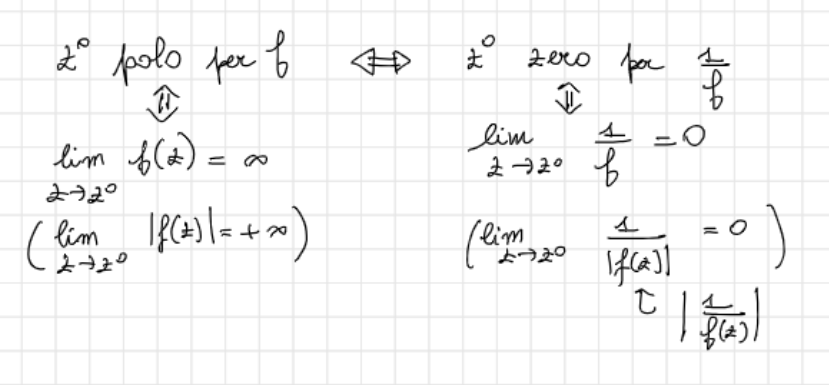 z⁰ polo per f ⟺ z⁰ zero per 1/f
⇕ ⇕
lim z→z⁰ f(z) = ∞ lim z→z⁰ 1/f = 0
(lim z→z⁰ |f(z)| = +∞) (lim z→z⁰ 1/|f(z)| = 0)
|1/f(z)|